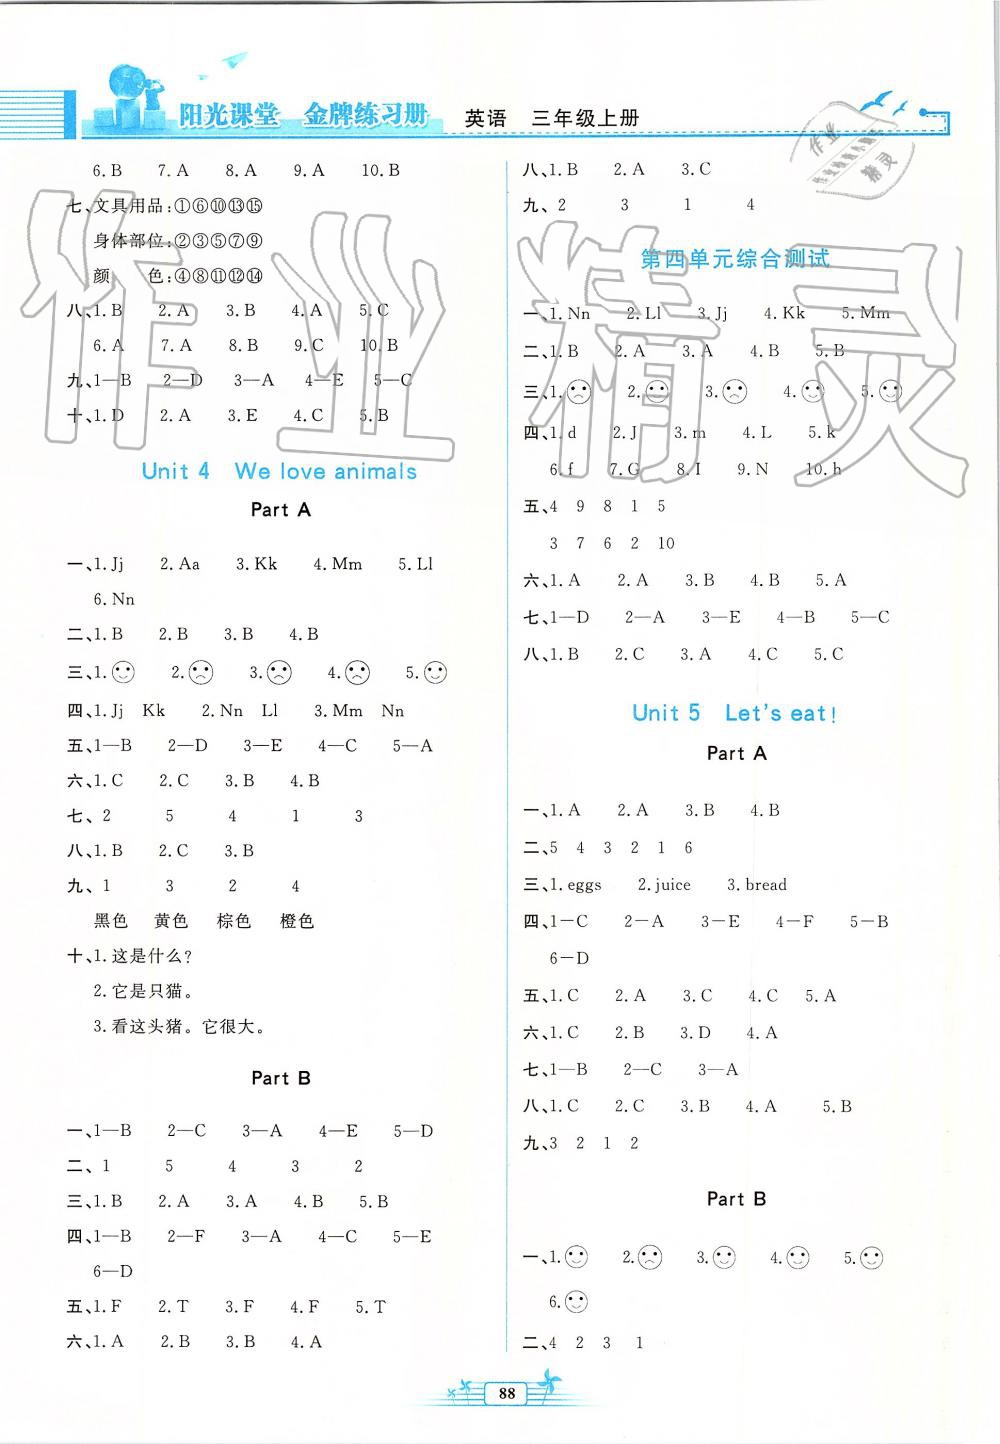 阳光课堂 金牌练习册 英语 三年级上册
6.B 7.A 8.A 9.A 10.B
七、文具用品:①⑥⑩⑬⑮
身体部位:②③⑤⑦⑨
颜 色:④⑧⑪⑫⑭
八、1.B 2.A 3.B 4.A 5.C
6.A 7.A 8.B 9.C 10.B
九、1—B 2—D 3—A 4—E 5—C
十、1.D 2.A 3.E 4.C 5.B
Unit 4 We love animals
Part A
一、1.Jj 2.Aa 3.Kk 4.Mm 5.Ll
6.Nn
二、1.B 2.B 3.B 4.B
三、1. 2. 3. 4. 5.
四、1.Jj Kk 2.Nn Ll 3.Mm Nn
五、1—B 2—D 3—E 4—C 5—A
六、1.C 2.C 3.B 4.B
七、2 5 4 1 3
八、1.B 2.C 3.B
九、1 3 2 4
黑色 黄色 棕色 橙色
十、1.这是什么?
2.它是只猫。
3.看这头猪。它很大。
Part B
一、1—B 2—C 3—A 4—E 5—D
二、1 5 4 3 2
三、1.B 2.A 3.A 4.B 5.B
四、1—B 2—F 3—A 4—C 5—E
6—D
五、1.F 2.T 3.F 4.F 5.T
六、1.A 2.B 3.B 4.A
八、1.B 2.A 3.C
九、2 3 1 4
第四单元综合测试
一、1.Nn 2.Ll 3.Jj 4.Kk 5.Mm
二、1.B 2.A 3.A 4.B 5.B
三、1. 2. 3. 4. 5.
四、1.d 2.J 3.m 4.L 5.k
6.f 7.G 8.I 9.N 10.h
五、4 9 8 1 5
3 7 6 2 10
六、1.A 2.A 3.B 4.B 5.A
七、1—D 2—A 3—E 4—B 5—C
八、1.B 2.C 3.A 4.C 5.C
Unit 5 Let's eat!
Part A
一、1.A 2.A 3.B 4.B
二、5 4 3 2 1 6
三、1.eggs 2.juice 3.bread
四、1—C 2—A 3—E 4—F 5—B
6—D
五、1.C 2.A 3.C 4.C 5.A
六、1.C 2.B 3.D 4.A
七、1—B 2—C 3—A
八、1.C 2.C 3.B 4.A 5.B
九、3 2 1 2
Part B
一、1. 2. 3. 4. 5.
6.
二、4 2 3 1
88
作业精灵
作业
精灵